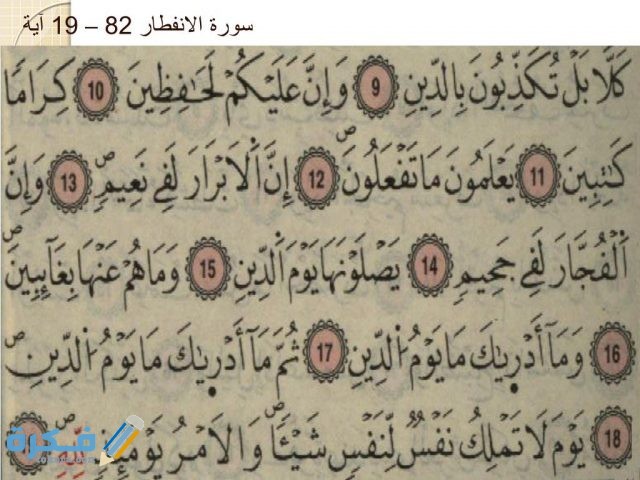 سورة الانفطار 82 – 19 آية
كَلَّا بَلْ تُكَذِّبُونَ بِالدِّينِ 9 وَإِنَّ عَلَيْكُمْ لَحَٰفِظِينَ 10 كِرَامًا
كَٰتِبِينَ 11 يَعْلَمُونَ مَا تَفْعَلُونَ ص 12 إِنَّ اَلْأَبْرَارَ لَفِي نَعِيمٍ ص 13 وَإِنَّ
اَلْفُجَّارَ لَفِي جَحِيمٍ 14 يَصْلَوْنَهَا يَوْمَ اَلدِّينِ 15 وَمَا هُمْ عَنْهَا بِغَآئِبِينَ ص
16 وَمَآ أَدْر۪يٰكَ مَا يَوْمُ اُلدِّينِ 17 ثُمَّ مَآ أَدْر۪يٰكَ مَا يَوْمُ اُلدِّينِ ص
18 يَوْمَ لَا تَمْلِكُ نَفْسٌ لِّنَفْسٍ شَيْـًٔا ص وَالَامْرُ يَوْمَئِذٍ لِّلهِ ص
فكرة